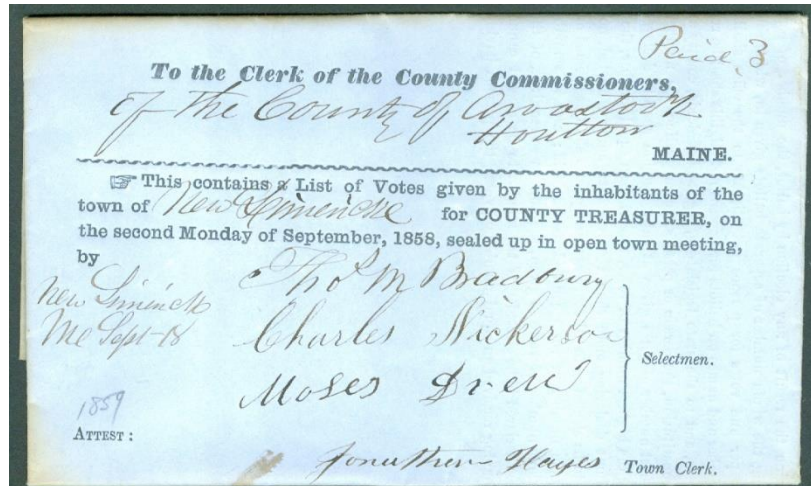 Paid. 3
To the Clerk of the County Commissioners,
of the County of Aroostook
Houlton
MAINE.
☞ This contains a List of Votes given by the inhabitants of the
town of New Limerick for COUNTY TREASURER, on
the second Monday of September, 1858, sealed up in open town meeting,
by
Thos M Bradbury
New Limerick
Me Sept-18
Charles Nickerson
Selectmen.
Moses Drew
1859
ATTEST:
Jonathan Hayes Town Clerk.